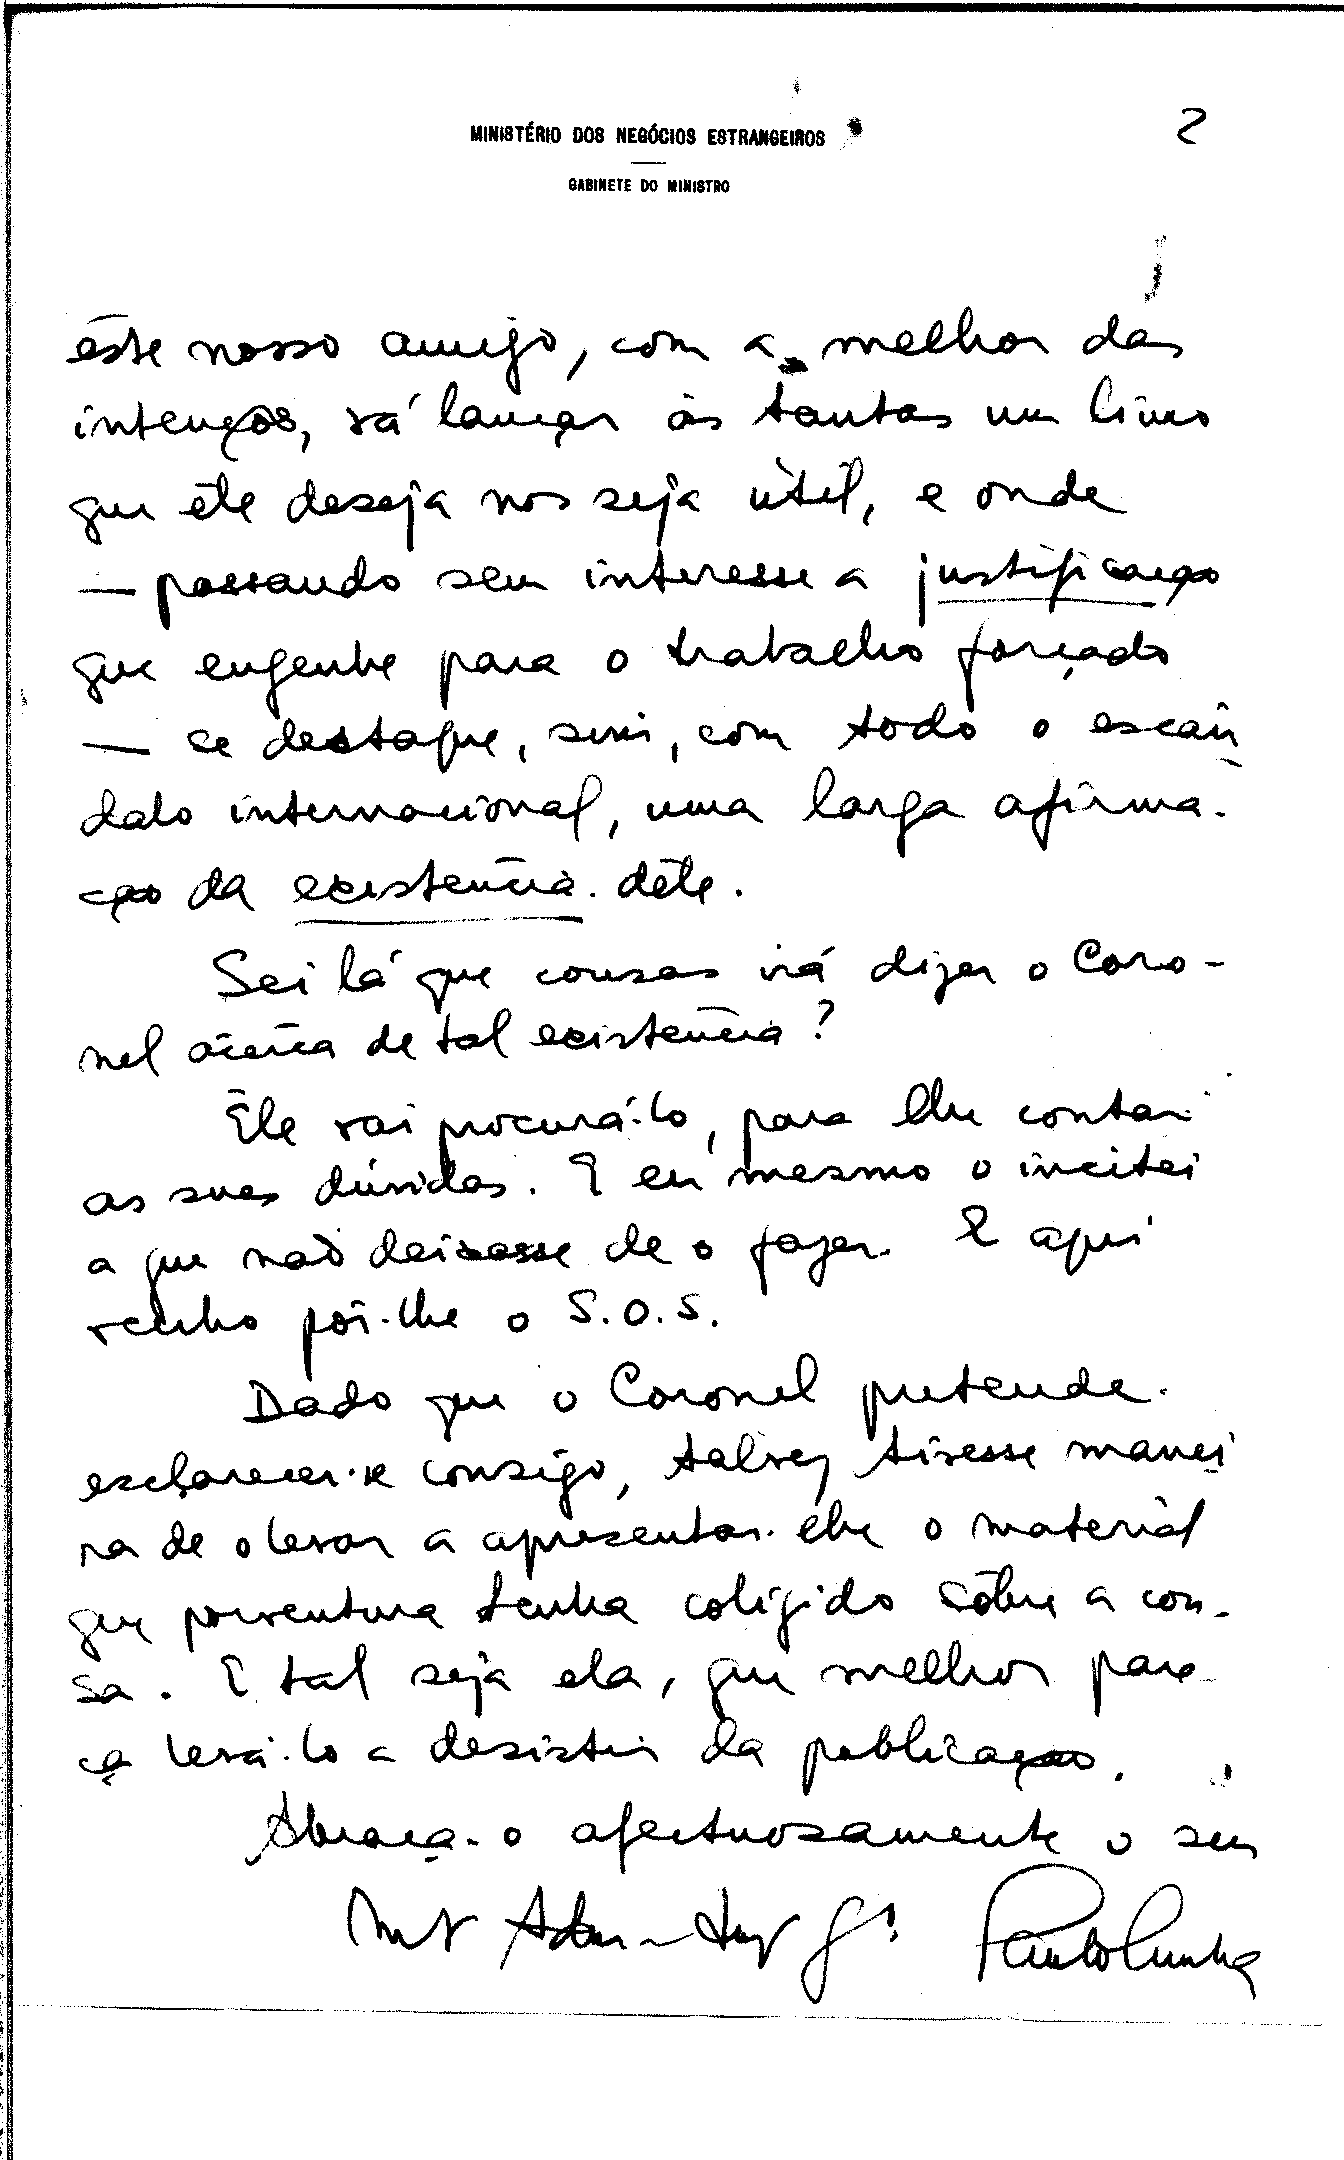 MINISTÉRIO DOS NEGÓCIOS ESTRANGEIROS
GABINETE DO MINISTRO
2
êste nosso amigo, com a melhor das
intenções, vá lançar às tantas um livro
que êle deseja nos seja útil, e onde
— passando sem interesse a justificação
que engenhe para o trabalho forçado
— se destaque, sim, com todo o escân
dalo internacional, uma larga afirma-
ção da existência dêle.
Sei lá que cousas irá dizer o Coro-
nel àcêrca de tal existência?
Êle vai procurá-lo, para lhe contar
as suas dúvidas. E eu mesmo o incitei
a que não deixasse de o fazer. E aqui
venho pôr-lhe o S.O.S.
Dado que o Coronel pretende
esclarecer-se consigo, talvez tivesse manei
ra de o levar a apresentar-lhe o material
que porventura tenha coligido sôbre a cou-
sa. E tal seja ela, que melhor pare
ça levá-lo a desistir da publicação.
Abraça-o afectuosamente o seu
Mt Adm.
Paulo Cunha